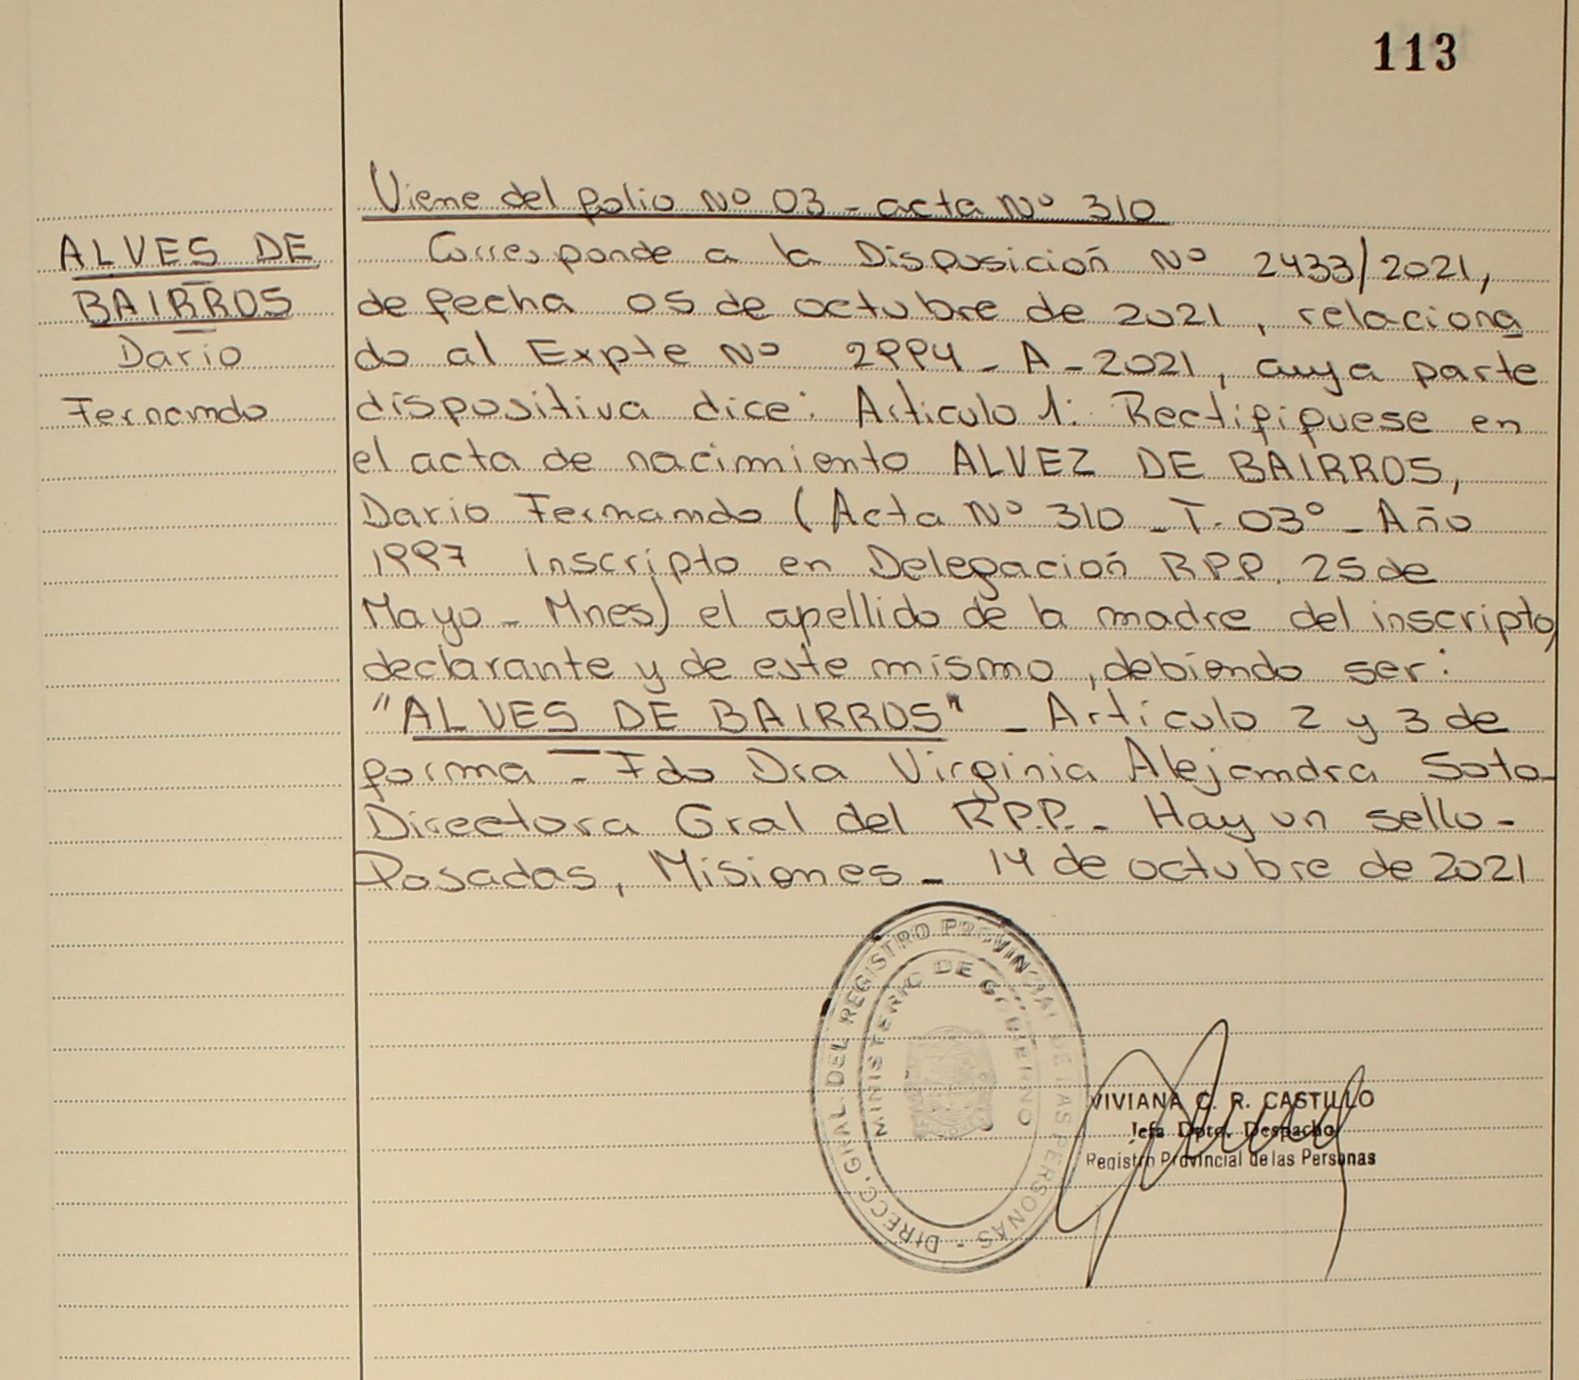 113
Viene del folio Nº 03 - acta Nº 310
ALVES DE
BAIRROS
Dario
Fernando
Corresponde a la Disposición Nº 2433/2021,
de fecha 05 de octubre de 2021, relaciona
do al Expte Nº 2994 - A - 2021, cuya parte
dispositiva dice: Articulo 1: Rectifiquese en
el acta de nacimiento ALVEZ DE BAIRROS,
Dario Fernando (Acta Nº 310 - T. 03º - Año
1997 inscripto en Delegación R.P.P. 25 de
Mayo - Mnes) el apellido de la madre del inscripto,
declarante y de este mismo, debiendo ser:
"ALVES DE BAIRROS" - Articulo 2 y 3 de
forma - Fdo Dra Virginia Alejandra Soto -
Directora Gral del R.P.P. - Hay un sello -
Posadas, Misiones - 14 de octubre de 2021
DIRECC. GRAL. DEL REGISTRO PROVINCIAL DE LAS PERSONAS -
MINISTERIO DE GOBIERNO
VIVIANA C. R. CASTILLO
Jefa Dpto. Despacho
Registro Provincial de las Personas